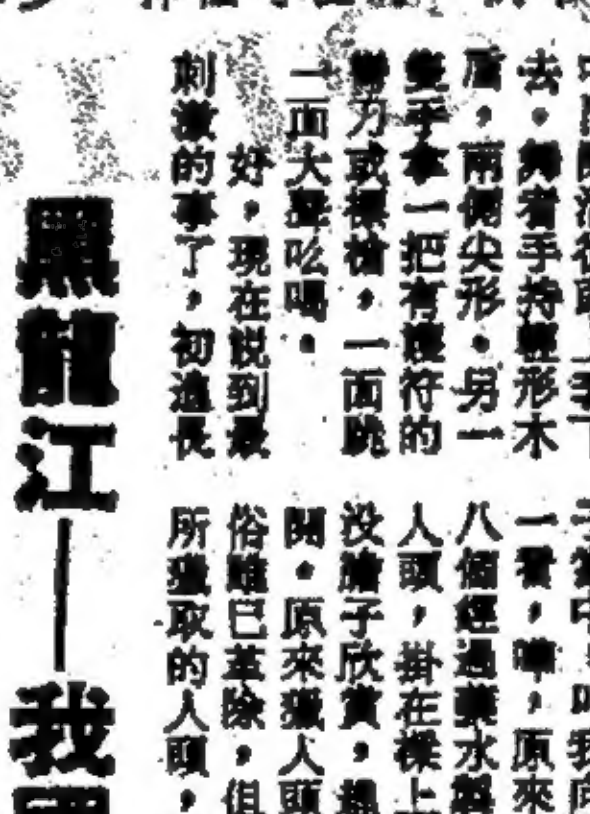 去。舞者手持輕形木
盾,兩側尖形。另一
隻手拿一把有護符的
彎刀或標槍,一面跳
一面大聲吆喝。
好,現在說到最
刺激的事了,初進長
一看,嘩,原來
八個經過藥水製
人頭,掛在樑上
沒膽子欣賞,趕
開。原來獵人頭
俗雖已革除,但
所獵取的人頭,
黑龍江——我國